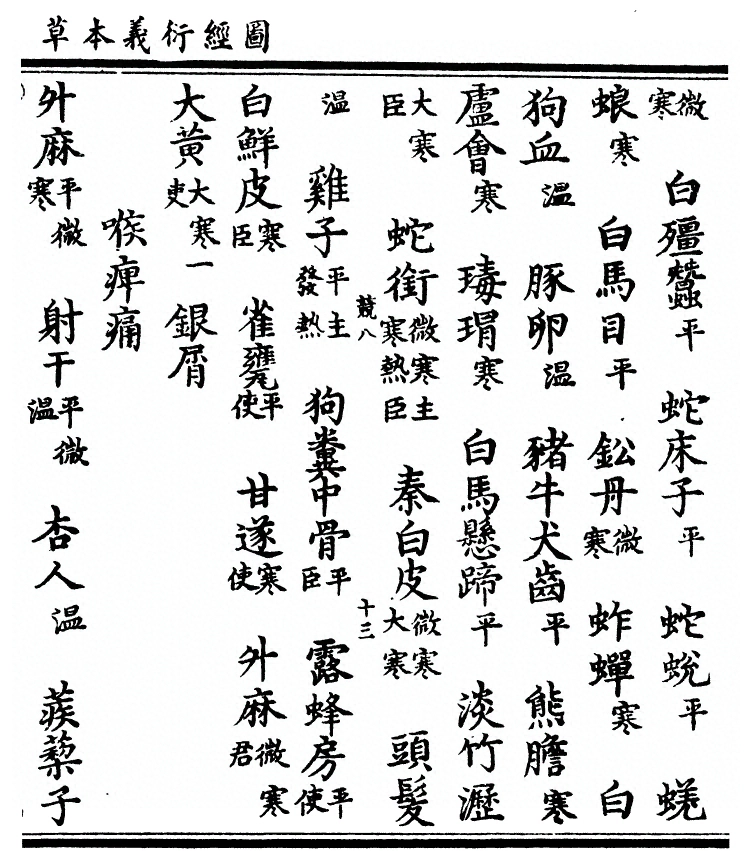 圖經衍義本草
微寒 白殭蠶平 蛇床子平 蛇蛻平 蜣
蜋寒 白馬目平 鈆丹微寒 蚱蟬寒 白
狗血溫 豚卵溫 豬牛犬齒平 熊膽寒
廬會寒 瑇瑁寒 白馬懸蹄平 淡竹瀝
大寒臣 蛇銜微寒主寒熱臣 秦白皮微寒大寒 頭髮
競八 十三
溫 雞子平主發熱 狗糞中骨平臣 露蜂房平使
白鮮皮寒臣 雀甕平使 甘遂寒使 升麻微寒君
大黃大寒吏 一銀屑
喉痺痛
升麻平微寒 射干平微溫 杏人溫 蒺蔾子